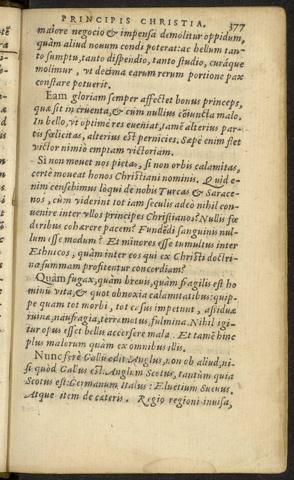 PRINCIPIS CHRISTIA. 377
maiore negocio & impensa demolitur oppidum,
quàm aliud nouum condi poterat: ac bellum tan-
to sumptu, tanto dispendio, tanto studio, curáque
molimur, vt decima earum rerum portione pax
constare potuerit.
Eam gloriam semper affectet bonus princeps,
quæ sit incruenta, & cum nullius cōiuncta malo.
In bello, vt optimè res eueniat, tamē alterius par-
tis fœlicitas, alterius est pernicies. Sæpè enim flet
victor nimiò emptam victoriam.
Si non mouet nos pietas, si non orbis calamitas,
certè moueat honos Christiani nominis. Quid e-
nim censebimus loqui de nobis Turcas & Sarace-
nos, cùm viderint tot iam seculis adeò nihil con-
uenire inter vllos principes Christianos? Nullis fœ
deribus cohærere pacem? Fundēdi sanguinis nul-
lum esse modum? Et minores esse tumultus inter
Ethnicos, quàm inter eos qui ex Christi doctri-
na summam profitentur concordiam?
Quàm fugax, quàm breuis, quàm fragilis est ho
minū vita, & quot obnoxia calamitatibus: quip-
pe quam tot morbi, tot casus impetunt, assiduæ
ruinæ, naufragia, terræmotus, fulmina. Nihil igi-
tur opus esset bellis accersere mala. Et tamē hinc
plus malorum quàm ex omnibus illis.
Nunc ferè Gallū odit Anglus, non ob aliud, ni-
si quòd Gallus est: Anglum Scotus, tantùm quia
Scotus est: Germanum Italus: Eluetium Sueuus.
Atque item de cæteris. Regio regioni inuisa,